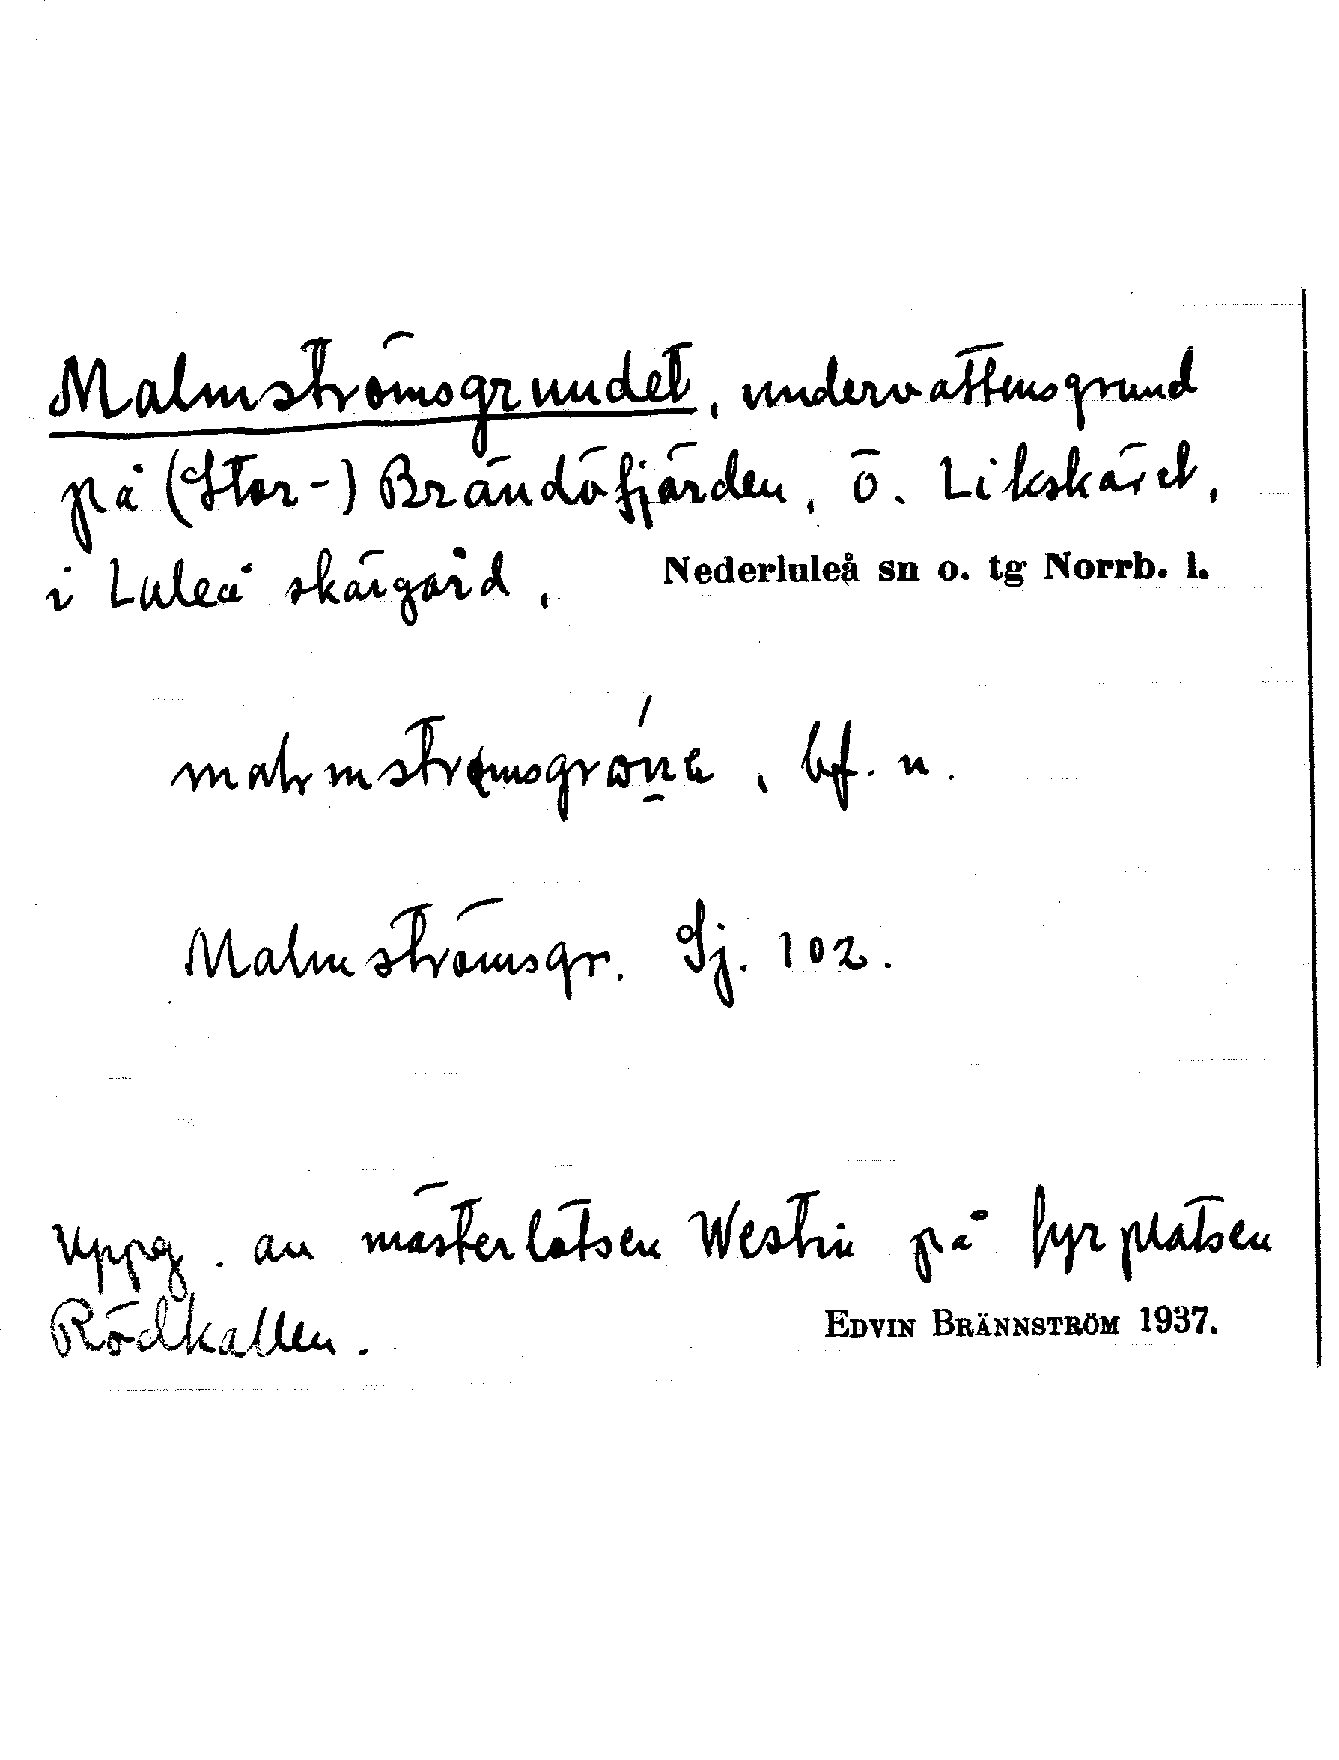 Malmströmsgrundet, undervattensgrund
på (Stor-) Brändöfjärden, ö. Likskäret,
i Luleå skärgård, Nederluleå sn o. tg Norrb. l.
, bf. n.
Malmströmsgr. Sj. 102.
Uppg. av mästerlotsen Westin på fyrplatsen
Rödkallen. EDVIN BRÄNNSTRÖM 1937.